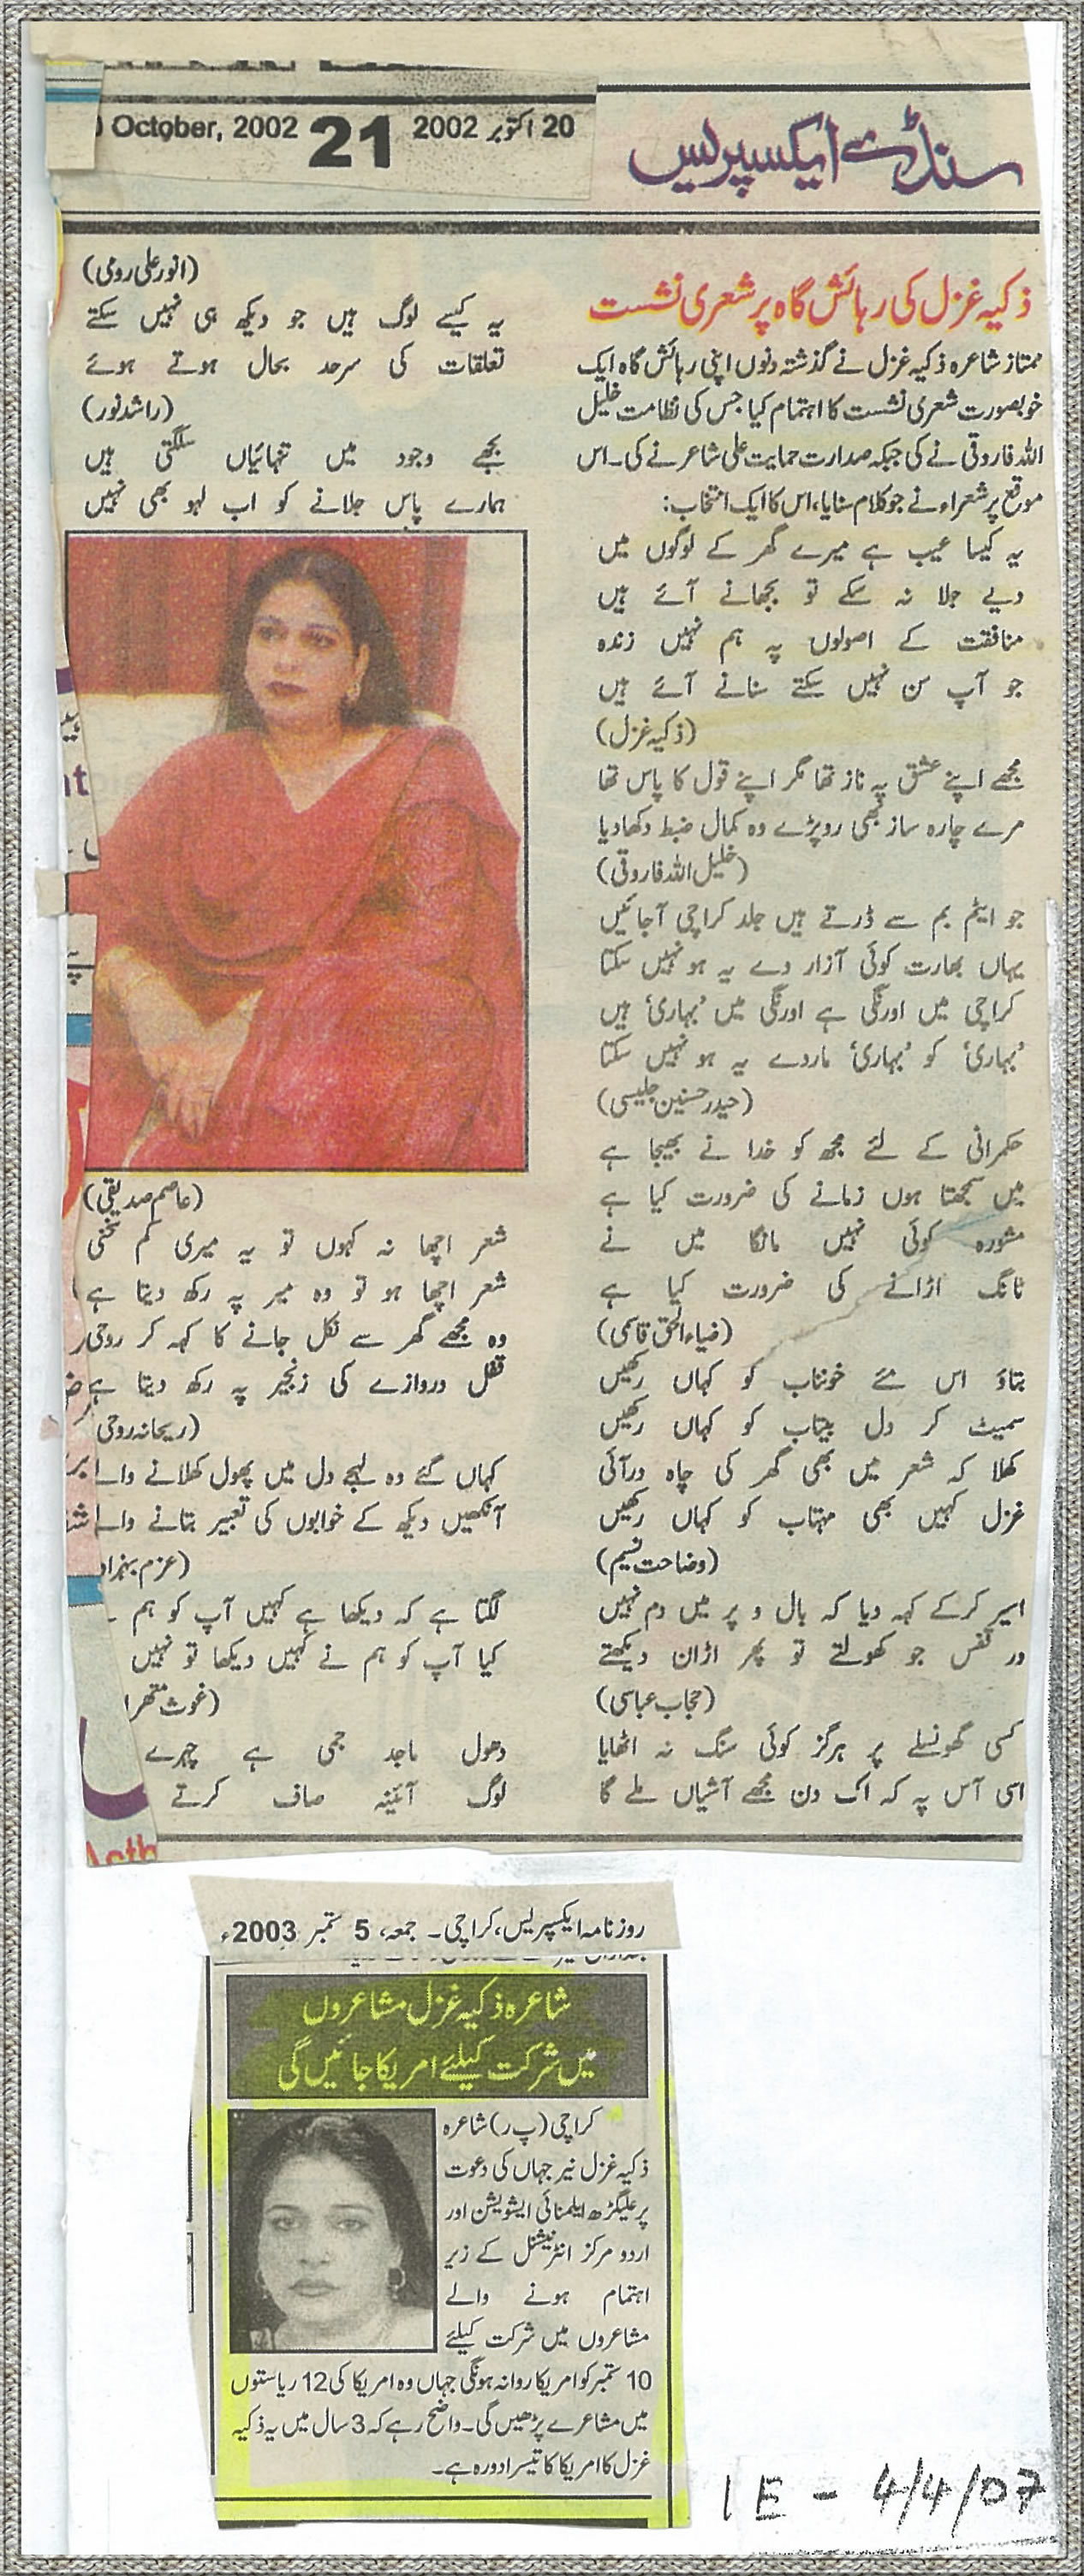 سنڈے ایکسپریس
October, 2002 21 2002 اکتوبر 20
ذکیہ غزل کی رہائش گاہ پر شعری نشست
ممتاز شاعرہ ذکیہ غزل نے گذشتہ دنوں اپنی رہائش گاہ ایک
خوبصورت شعری نشست کا اہتمام کیا جس کی نظامت خلیل
اللہ فاروقی نے کی جبکہ صدارت حمایت علی شاعر نے کی۔ اس
موقع پر شعراء نے جو کلام سنایا، اس کا ایک انتخاب:
یہ کیسا عیب ہے میرے گھر کے لوگوں میں
دیے جلا نہ سکے تو بجھانے آئے ہیں
منافقت کے اصولوں پہ ہم نہیں زندہ
جو آپ سن نہیں سکتے سنانے آئے ہیں
(ذکیہ غزل)
مجھے اپنے عشق پہ ناز تھا مگر اپنے قول کا پاس تھا
مرے چارہ ساز بھی رو پڑے وہ کمال ضبط دکھا دیا
(خلیل اللہ فاروقی)
جو ایٹم بم سے ڈرتے ہیں جلد کراچی آجائیں
یہاں بھارت کوئی آزار دے یہ ہو نہیں سکتا
کراچی میں اورنگی ہے اورنگی میں ’بہاری‘ ہیں
’بہاری‘ کو ’بہاری‘ مار دے یہ ہو نہیں سکتا
(حیدر حسنین جلیسی)
حکمرانی کے لئے مجھ کو خدا نے بھیجا ہے
میں سمجھتا ہوں زمانے کی ضرورت کیا ہے
مشورہ کوئی نہیں مانگا میں نے
ٹانگ اڑانے کی ضرورت کیا ہے
(ضیاء الحق قاسمی)
بتاؤ اس مئے خونناب کو کہاں رکھیں
سمیٹ کر دل بیتاب کو کہاں رکھیں
کھلا کہ شعر میں بھی گھر کی چاہ در آئی
غزل کہیں بھی مہتاب کو کہاں رکھیں
(وضاحت نسیم)
اسیر کرکے کہہ دیا کہ بال و پر میں دم نہیں
در قفس جو کھولتے تو پھر اڑان دیکھتے
(حجاب عباسی)
کسی گھونسلے پر ہرگز کوئی سنگ نہ اٹھایا
اسی آس پہ کہ اک دن مجھے آشیاں ملے گا
(انور علی رومی)
یہ کیسے لوگ ہیں جو دیکھ ہی نہیں سکتے
تعلقات کی سرحد بحال ہوتے ہوئے
(راشد نور)
بجھے وجود میں تنہائیاں سلگتی ہیں
ہمارے پاس جلانے کو اب لہو بھی نہیں
(عاصم صدیقی)
شعر اچھا نہ کہوں تو یہ میری کم سخنی
شعر اچھا ہو تو وہ میر پہ رکھ دیتا ہے
وہ مجھے گھر سے نکل جانے کا کہہ کر روحی
قفل دروازے کی زنجیر پہ رکھ دیتا ہے
(ریحانہ روحی
کہاں گئے وہ لہجے دل میں پھول کھلانے والے
آنکھیں دیکھ کے خوابوں کی تعبیر بتانے والے
(عزم بہزاد
لگتا ہے کہ دیکھا ہے کہیں آپ کو ہم
کیا آپ کو ہم نے کہیں دیکھا تو نہیں
(غوث متھرا
دھول ماجد جمی ہے چہرے
لوگ آئینہ صاف کرتے
روزنامہ ایکسپریس، کراچی۔ جمعہ، 5 ستمبر 2003ء
شاعرہ ذکیہ غزل مشاعروں
میں شرکت کیلئے امریکا جائیں گی
کراچی (پ ر) شاعرہ
ذکیہ غزل نیر جہاں کی دعوت
پر علیگڑھ ایلمنائی ایشویشن اور
اردو مرکز انٹرنیشنل کے زیر
اہتمام ہونے والے
مشاعروں میں شرکت کیلئے
10 ستمبر کو امریکا روانہ ہونگی جہاں وہ امریکا کی 12 ریاستوں
میں مشاعرے پڑھیں گی۔ واضح رہے کہ 3 سال میں یہ ذکیہ
غزل کا امریکا کا تیسرا دورہ ہے۔
IE - 4/4/07